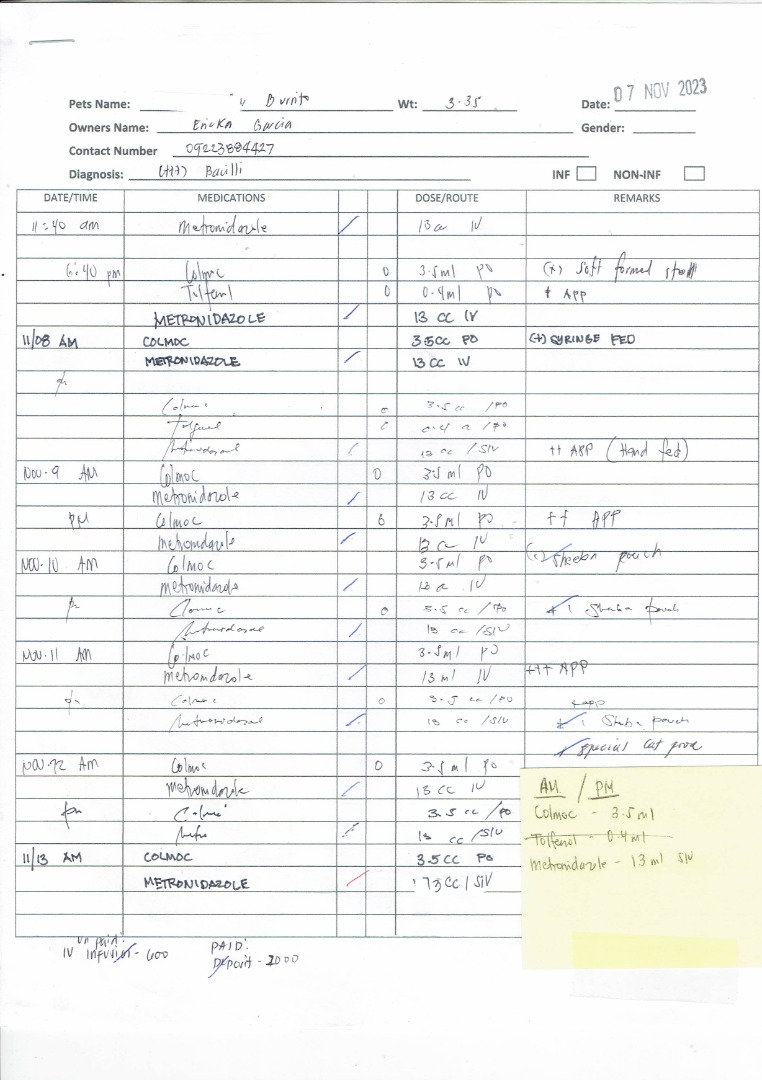 07 NOV 2023
Pets Name: Burrito Wt: 3.35 Date:
Owners Name: Ericka Garcia Gender:
Contact Number 09223884427
Diagnosis: (+++) Bacilli INF NON-INF
DATE/TIME MEDICATIONS DOSE/ROUTE REMARKS
11:40 am Metronidazole 13 cc IV
6:40 pm Colmoc 0 3.5ml PO (+) soft formed stool
Tolfenl 0 0.4ml PO + APP
METRONIDAZOLE 13 CC IV
11/08 AM COLMOC 3.5CC PO (+) SYRINGE FED
METRONIDAZOLE 13 CC IV
pm
Colmoc 0 3.5 cc /PO
0 0.4 cc /PO
13 cc /SIV ++ APP (Hand fed)
NOV.9 AM Colmoc 0 3.5 ml PO
Metronidazole 13 cc IV
PM Colmoc 0 3.5ml PO ++ APP
metronidazole 13 cc IV
NOV.10 AM Colmoc 3.5ml PO Sheeba pouch
metronidazole 13 cc IV
pm 0 3.5 cc /PO + 1 Sheba pouch
13 cc /SIV
NOV.11 AM Colmoc 3.5ml PO
metronidazole 13 ml IV +++ APP
pm Colmoc 0 3.5 cc /PO +app
13 cc /SIV + 1 Sheba pouch
+ special cat
NOV.12 AM Colmoc 0 3.5ml PO
Metronidazole 13 cc IV
pm 3.5 cc /PO
13 cc /SIV
11/13 AM COLMOC 3.5CC PO
METRONIDAZOLE 13CC / SIV
AM / PM
Colmoc - 3.5ml
Tolfenol - 0.4ml
Metronidazole - 13 ml SIV
un paid:
IV INFUSION - 600
PAID:
Deposit - 2000